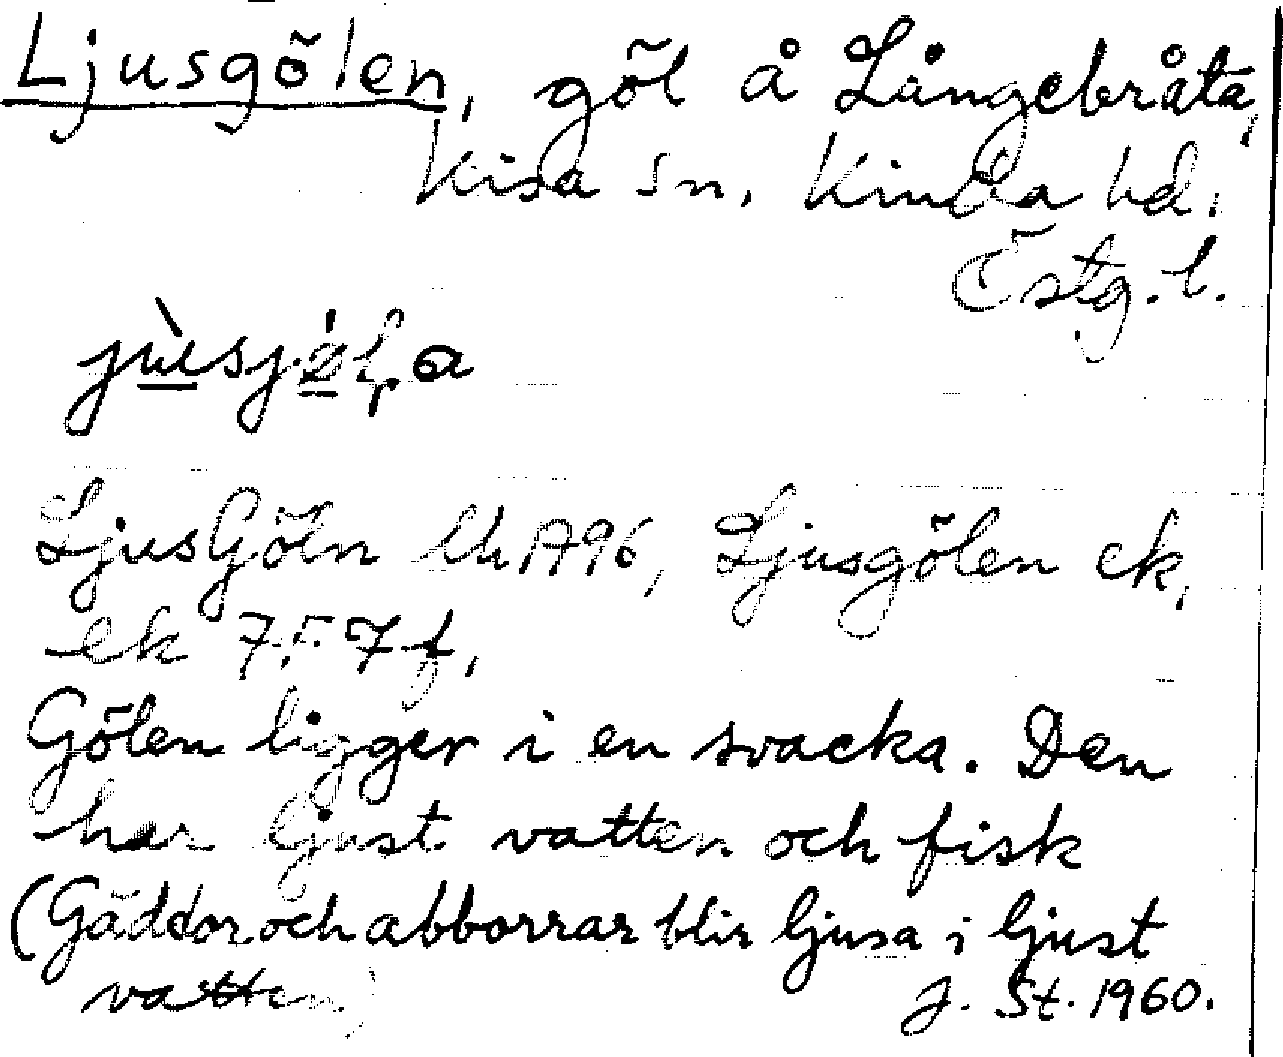 Ljusgölen, göl å Långebråta,
Kisa sn. Kinda hd.
Östg. l.
LjusGöln lh 1796, Ljusgölen ek,
ek 7F7f,
Gölen ligger i en svacka. Den
har ljust vatten och fisk
(Gäddor och abborrar blir ljusa i ljust
vatten)
J. St. 1960.